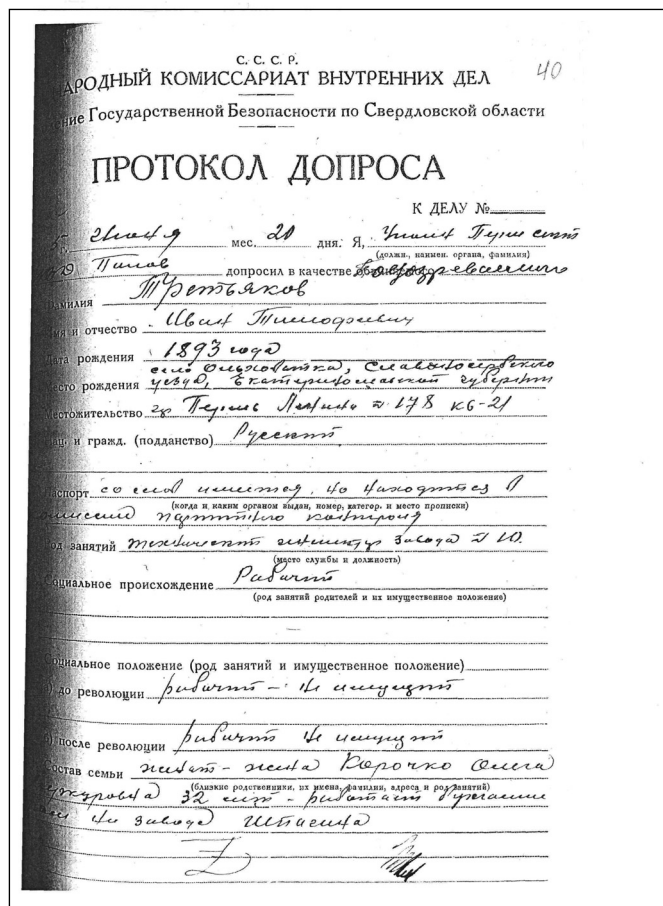 40
С. С. С. Р.
АРОДНЫЙ КОМИССАРИАТ ВНУТРЕННИХ ДЕЛ
ние Государственной Безопасности по Свердловской области
ПРОТОКОЛ ДОПРОСА
К ДЕЛУ №
Июня мес. 20 дня. Я,
(должн., наимен. органа, фамилия)
Попов допросил в качестве
амилия Третьяков
мя и отчество Иван Тимофеевич
ата рождения 1893 года
село Ольховатка, Славяносербского
есто рождения уезда, Екатеринославской губернии
естожительство гр Пермь Ленина № 178 кб-21
ац. и гражд. (подданство) Русский
аспорт со слов имеется, но находится в
(когда и каким органом выдан, номер, категор. и место прописки)
миссии партийного контроля
од занятий технический завода № 10.
(место службы и должность)
оциальное происхождение Рабочий
(род занятий родителей и их имущественное положение)
оциальное положение (род занятий и имущественное положение)
) до революции рабочий – не имущий
) после революции рабочий не имущий
остав семьи женат – жена Корочко Ольга
(близкие родственники, их имена, фамилии, адреса и род занятий)
32 лет – работает
на заводе Шпагина